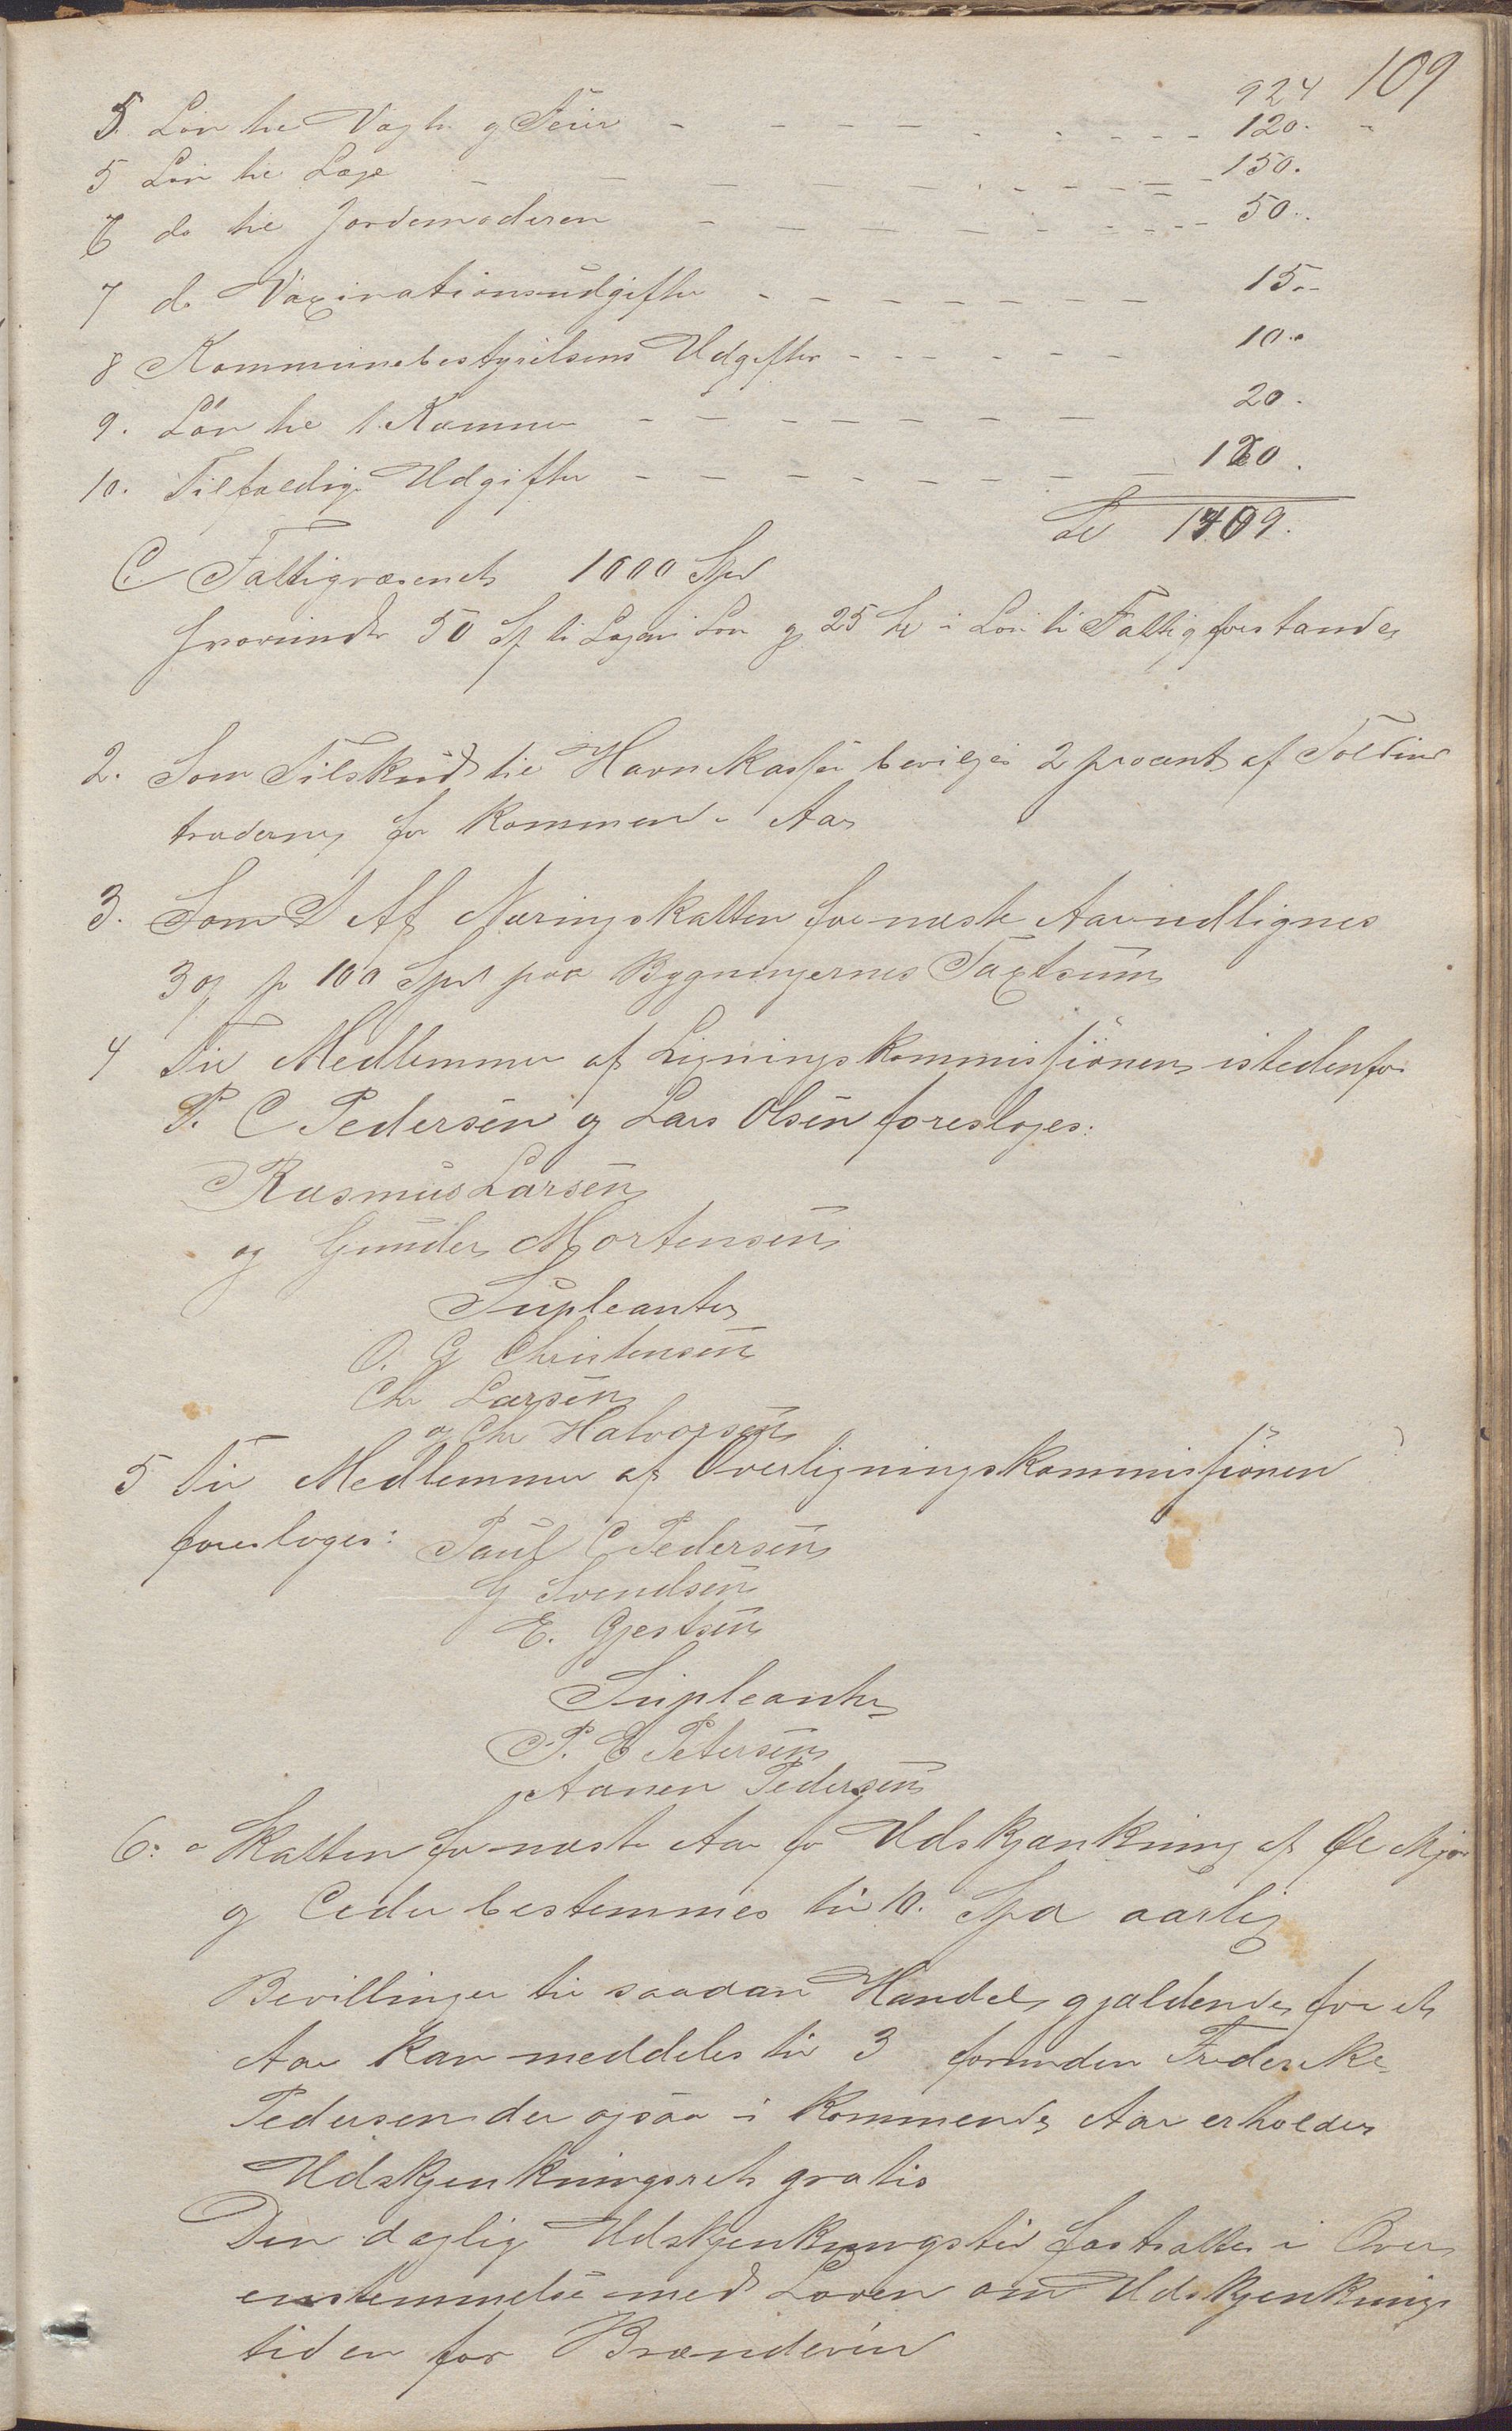 109
924
5. Løn til Vægter og Feier - - - - - - - - 120. "
5 Løn til Læge - - - - - - - - 150.
6 do til Jordemoderen - - - - - - - - 50..
7 do Vaxinationsudgifter - - - - - - - 15.-
8 Kommunebestyrelsens Udgifter - - - - - - 10..
9. Løn til 1 Kæmner - - - - - - - 20.
10. Tilfældige Udgifter - - - - - - - 120.
1409.
C Fattigvæsenet 1000 Spd
hvorunder 50 Sp til Lægens Løn og 25 i Løn til Fattigforstander
2. Som Tilskud til Havnekassen beviljes 2 procent af Toldind
traderne for kommende Aar
3. Som Af Næringskatten for næste Aar udlignes
3 pr 100 Spd paa Bygningernes Taxtsum
4 Til Medlemmer af Ligningskommissionen istedenfor
P. C Pedersen og Lars Olsen foresloges:
Rasmus Larsen
og Gunder Mortensen
Supleanter
O. G Christensen
Chr Larsen
og Chr Halvorsen
5 Til Medlemmer af Overligningskommissionen
foresloges: Paul C Pedersen
G Svendsen
E. Gjertsen
Supleanter
P. E Petersen
Aanen Pedersen
6. Skatten for næste Aar for Udskjænkning af Øl Mjød
og Ceder bestemmes til 10. Spd aarlig
Bevillinger til saadan Handel, gjældende for et
Aar kan meddeles til 3 foruden Frederikke
Pedersen der ogsaa i kommende Aar erholder
Udskjenkningsret gratis
Den daglige Udskjenkningstid fastsattes i Over
enstemmelse med Loven om Udskjenknings
tiden for Brændeviin